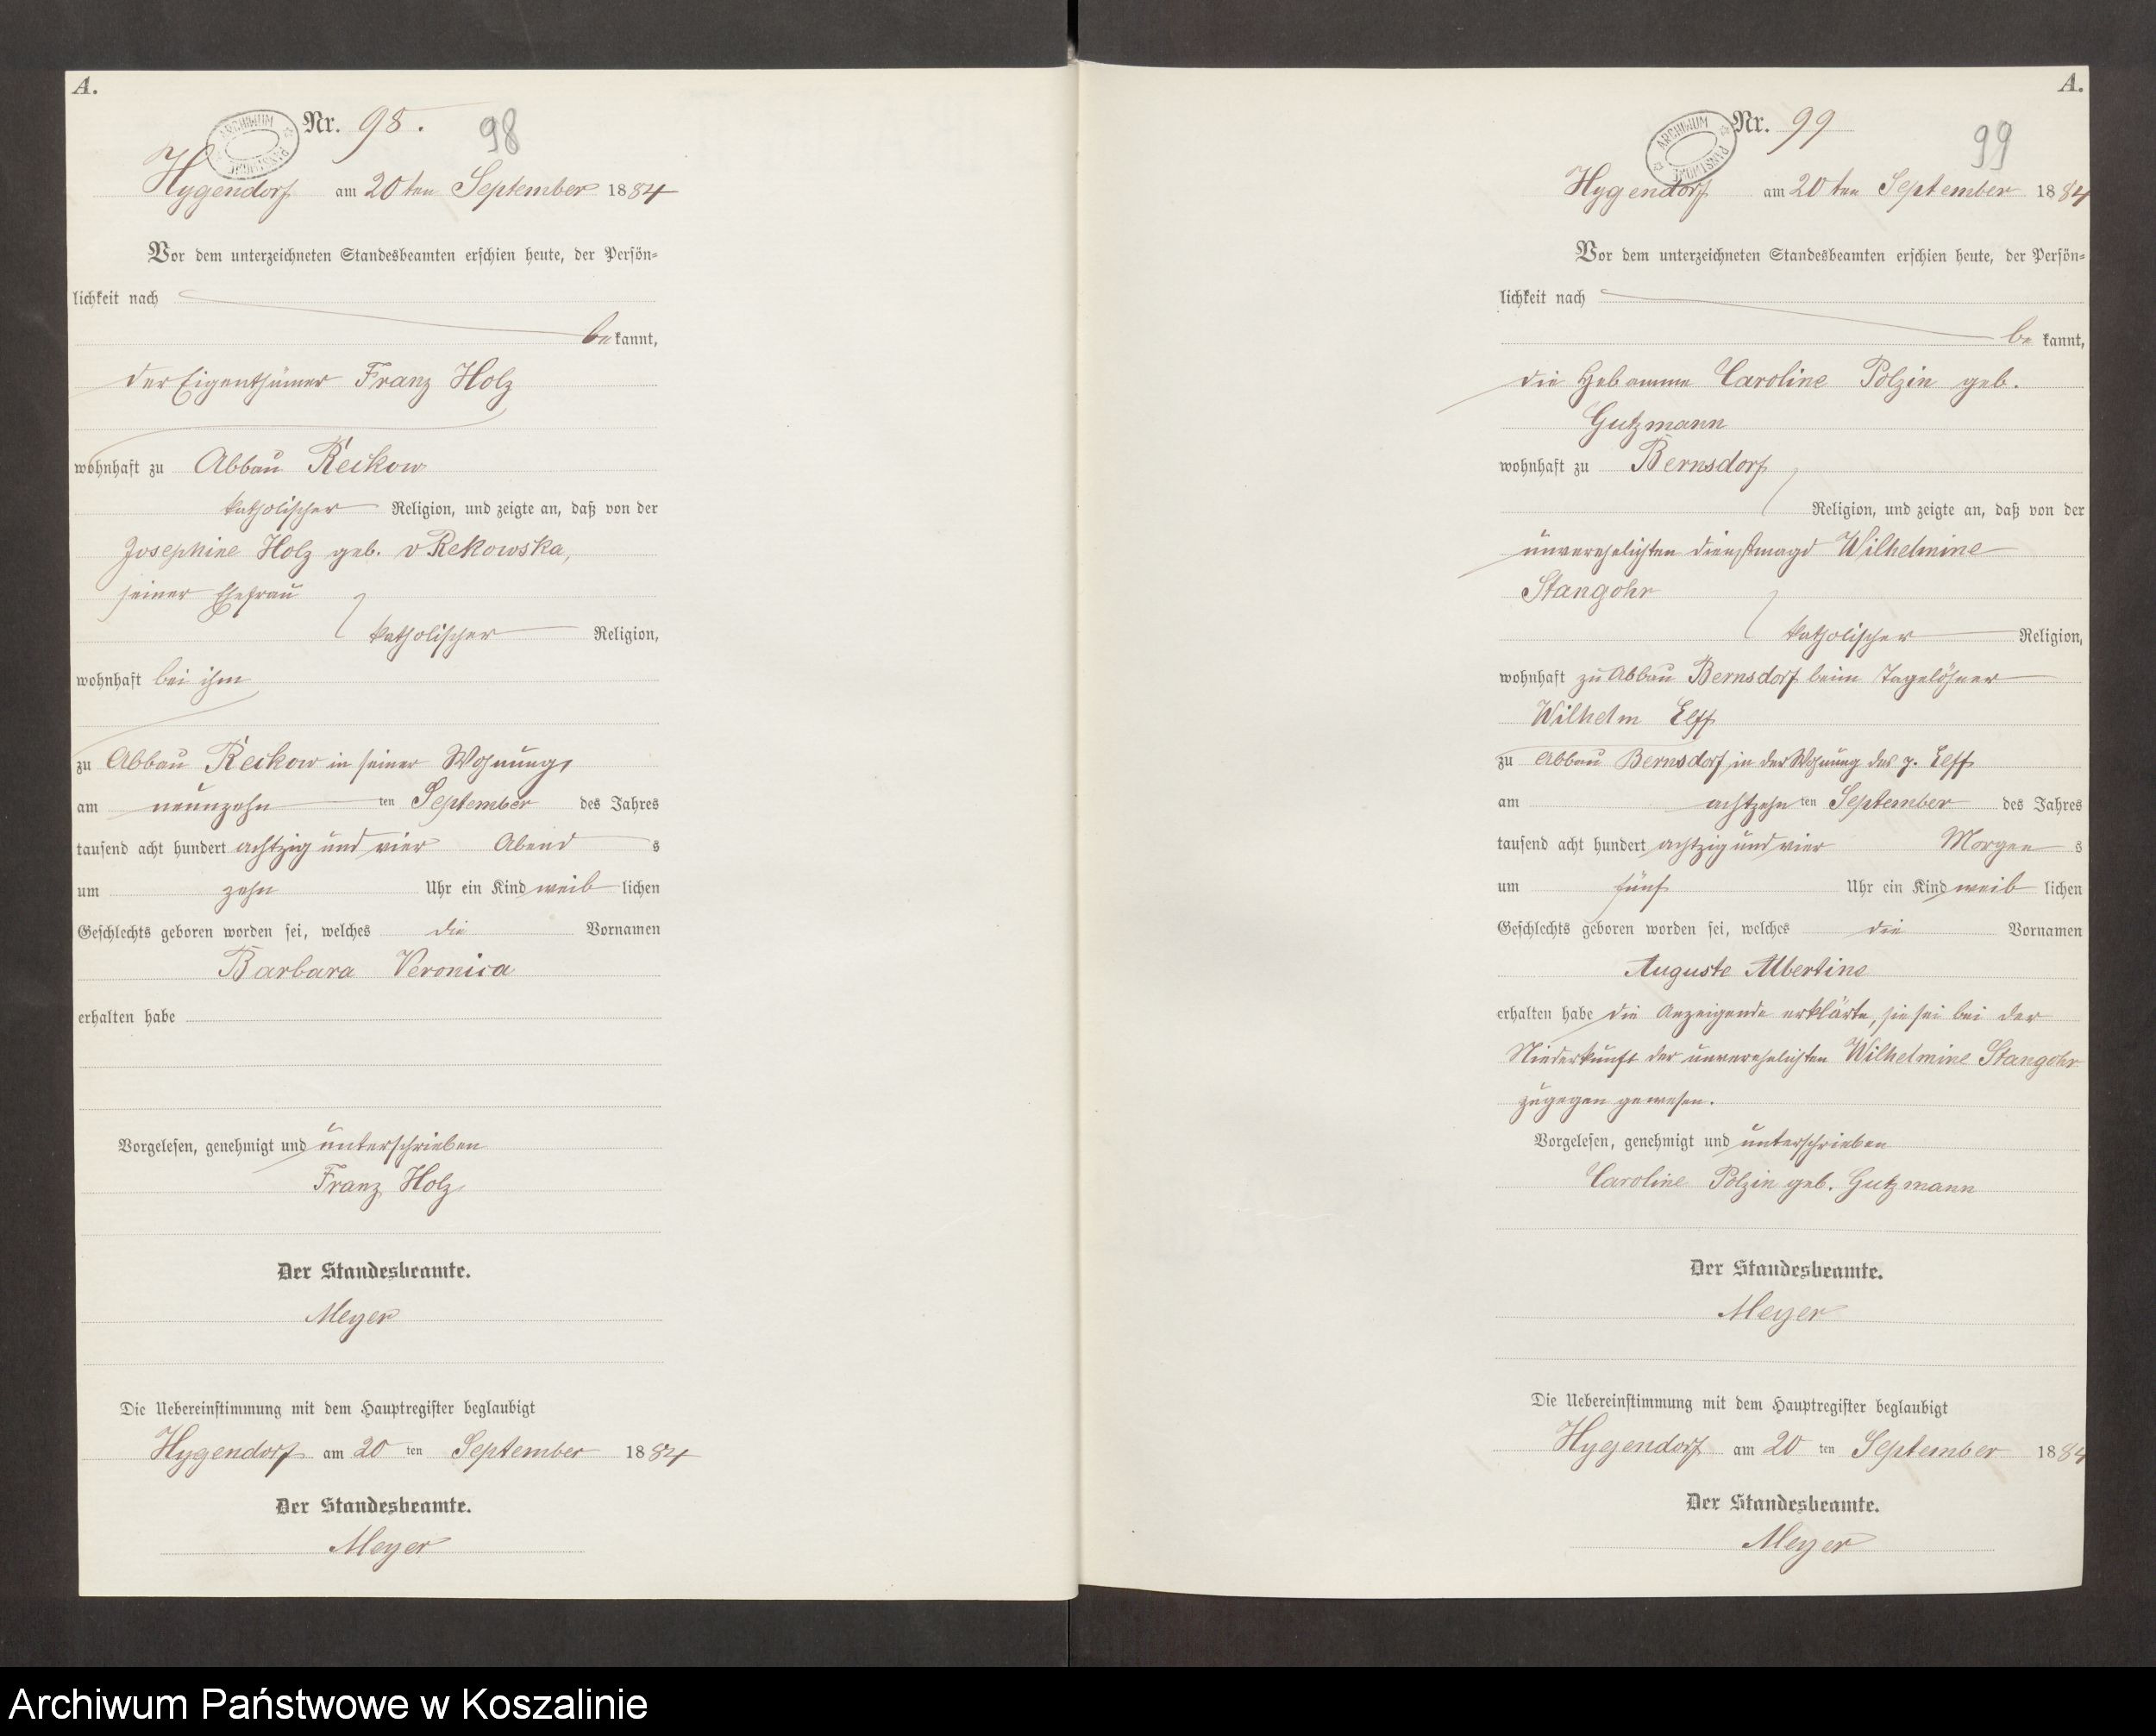 A.
Nr. 98. 98
ARCHIWUM PAŃSTWOWE
Hygendorf am 20ten September 1884
Vor dem unterzeichneten Standesbeamten erschien heute, der Persön=
lichkeit nach
bekannt,
der Eigenthümer Franz Holz
wohnhaft zu Abbau Reckow
katholischer Religion, und zeigte an, daß von der
Josephine Holz geb. v Rekowska,
seiner Ehefrau
katholischer Religion,
wohnhaft bei ihm
zu Abbau Reckow in seiner Wohnung,
am neunzehn ten September des Jahres
tausend acht hundert achtzig und vier Abend s
um zehn Uhr ein Kind weib lichen
Geschlechts geboren worden sei, welches die Vornamen
Barbara Veronica
erhalten habe
Vorgelesen, genehmigt und unterschrieben
Franz Holz
Der Standesbeamte.
Meyer
Die Uebereinstimmung mit dem Hauptregister beglaubigt
Hygendorf am 20 ten September 1884
Der Standesbeamte.
Meyer
A.
Nr. 99 99
ARCHIWUM PAŃSTWOWE
Hygendorf am 20ten September 1884
Vor dem unterzeichneten Standesbeamten erschien heute, der Persön=
lichkeit nach
be kannt,
die Hebamme Caroline Polzin geb.
Gutzmann
wohnhaft zu Bernsdorf
Religion, und zeigte an, daß von der
unverehelichten Dienstmagd Wilhelmine
Stangohr
katholischer Religion,
wohnhaft zu Abbau Bernsdorf beim Tagelöhner
Wilhelm Elff
zu Abbau Bernsdorf in der Wohnung des p. Elff
am achtzehn ten September des Jahres
tausend acht hundert achtzig und vier Morgen s
um fünf Uhr ein Kind weib lichen
Geschlechts geboren worden sei, welches die Vornamen
Auguste Albertine
erhalten habe die Anzeigende erklärte, sie sei bei der
Niederkunft der unverehelichten Wilhelmine Stangohr
zugegen gewesen.
Vorgelesen, genehmigt und unterschrieben
Caroline Polzin geb. Gutzmann
Der Standesbeamte.
Meyer
Die Uebereinstimmung mit dem Hauptregister beglaubigt
Hygendorf am 20 ten September 1884
Der Standesbeamte.
Meyer
Archiwum Państwowe w Koszalinie